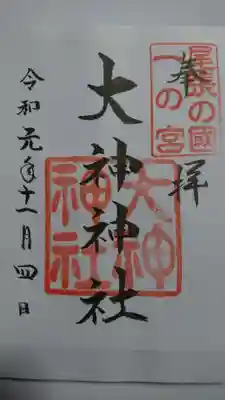 奉拝
尾張の國
一の宮
大神神社
大神
神社
令和元年十一月四日